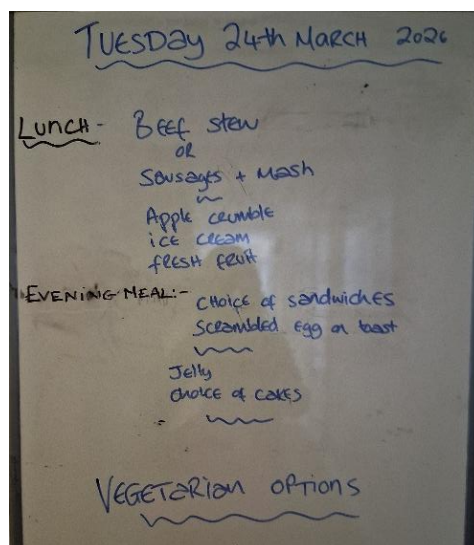 TUESDAY 24th MARCH 2026
LUNCH - BEEF STEW
OR
SAUSAGES + MASH
APPLE CRUMBLE
ICE CREAM
FRESH FRUIT
EVENING MEAL:- CHOICE OF SANDWICHES
SCRAMBLED EGG on toast
Jelly
CHOICE of CAKES
VEGETARIAN OPTIONS